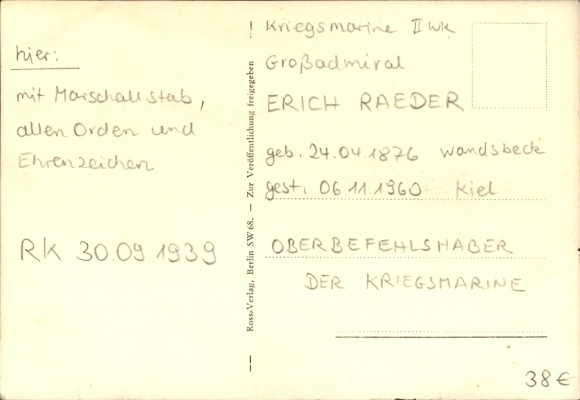 hier:
mit Marschallstab,
allen Orden und
Ehrenzeichen
RK 30.09 1939
Ross-Verlag, Berlin SW 68. — Zur Veröffentlichung freigegeben
Kriegsmarine II WK
Großadmiral
ERICH RAEDER
geb. 24.04 1876 Wandsbeck
gest. 06 11.1960 Kiel
OBERBEFEHLSHABER
DER KRIEGSMARINE
38 €